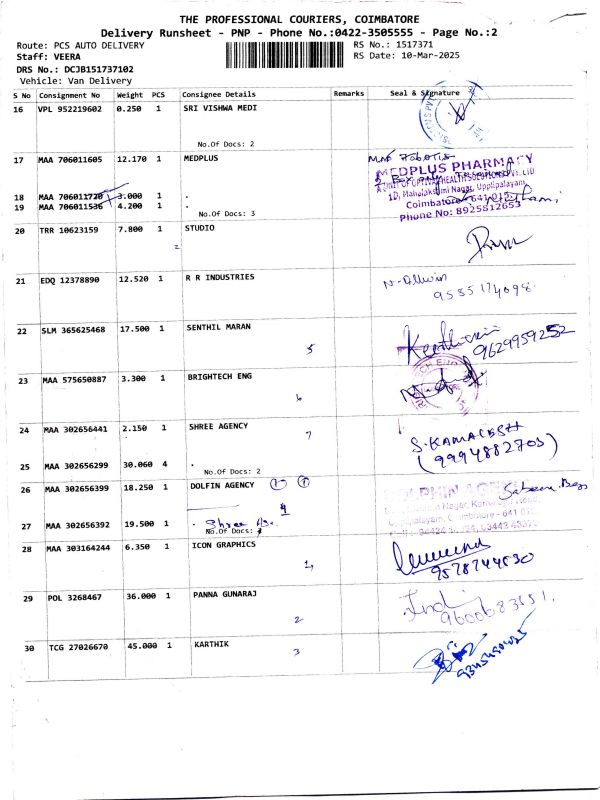 THE PROFESSIONAL COURIERS, COIMBATORE
Delivery Runsheet - PNP - Phone No.:0422-3505555 - Page No.:2
Route: PCS AUTO DELIVERY
RS No.: 1517371
Staff: VEERA
RS Date: 10-Mar-2025
DRS No.: DCJB151737102
Vehicle: Van Delivery
S No Consignment No Weight PCS Consignee Details Remarks Seal & Signature
16 VPL 952219602 0.250 1 SRI VISHWA MEDI
No.Of Docs: 2
17 MAA 706011605 12.170 1 MEDPLUS
MEDPLUS PHARMACY
1D, Mahalakshmi Nagar, Uppilipalayam
Coimbatore 641 015
Phone No: 8925812653
18 MAA 706011720 3.000 1 .
19 MAA 706011536 4.200 1 .
No.Of Docs: 3
20 TRR 10623159 7.800 1 STUDIO
21 EDQ 12378890 12.520 1 R R INDUSTRIES
9585174098
22 SLM 365625468 17.500 1 SENTHIL MARAN
5
9629959252
23 MAA 575650887 3.300 1 BRIGHTECH ENG
6
24 MAA 302656441 2.150 1 SHREE AGENCY
7
S. KAMALESH
(9994882703)
25 MAA 302656299 30.060 4 .
No.Of Docs: 2
26 MAA 302656399 18.250 1 DOLFIN AGENCY
DOLPHIN AGENC
27 MAA 302656392 19.500 1 . Shree
No.Of Docs:
28 MAA 303164244 6.350 1 ICON GRAPHICS
1,
9578744530
29 POL 3268467 36.000 1 PANNA GUNARAJ
2
9600683151.
30 TCG 27026670 45.000 1 KARTHIK
3